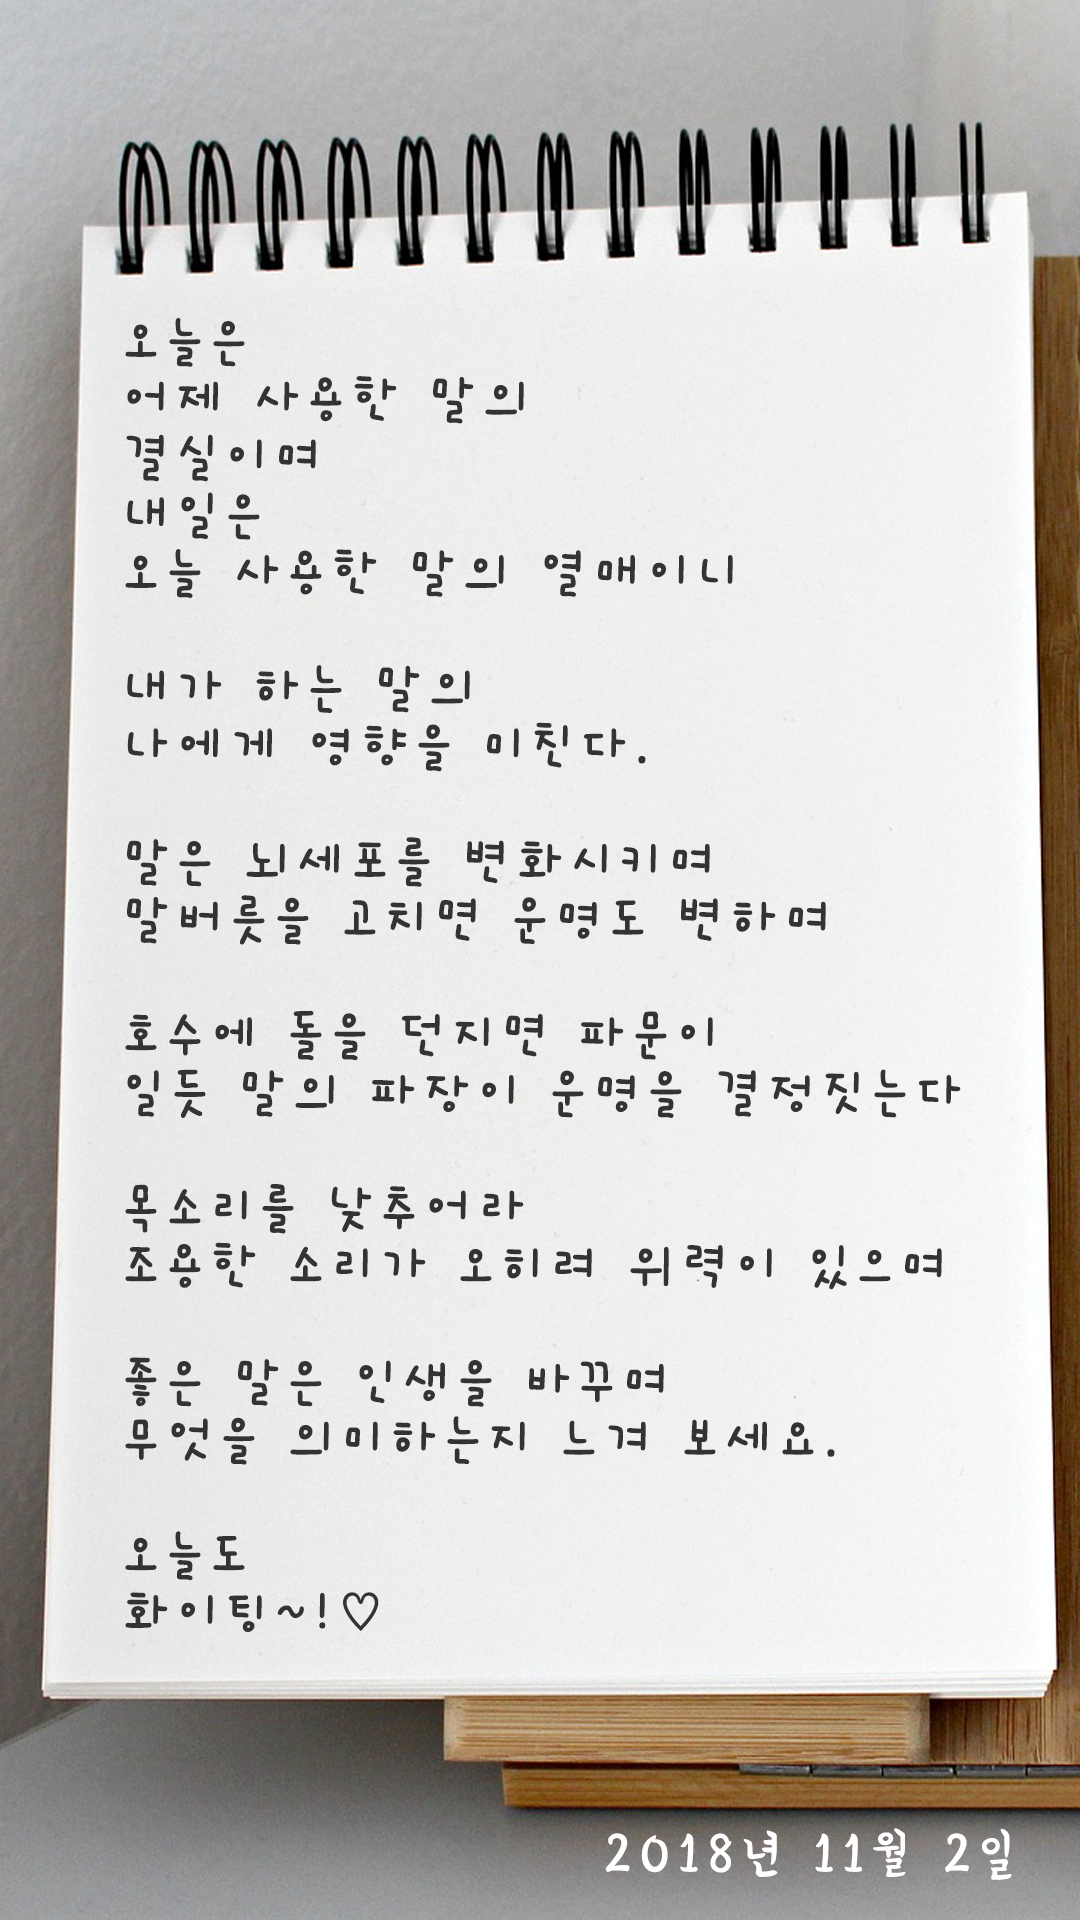 오늘은
어제 사용한 말의
결실이며
내일은
오늘 사용한 말의 열매이니
내가 하는 말의
나에게 영향을 미친다.
말은 뇌세포를 변화시키며
말버릇을 고치면 운명도 변하며
호수에 돌을 던지면 파문이
일듯 말의 파장이 운명을 결정짓는다
목소리를 낮추어라
조용한 소리가 오히려 위력이 있으며
좋은 말은 인생을 바꾸며
무엇을 의미하는지 느겨 보세요.
오늘도
화이팅~!♡
2018년 11월 2일